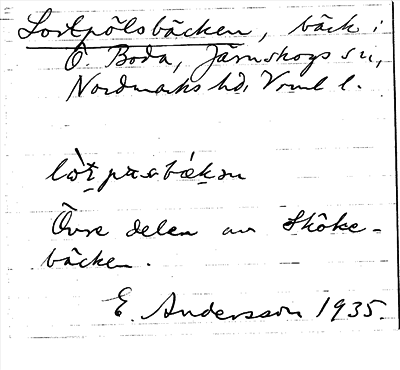 Lortpölsbäcken, bäck i
Ö. Boda, Järnskogs sn,
Nordmarks hd, Vrml l.
Övre delen av Sköke-
bäcken.
E. Andersson 1935.